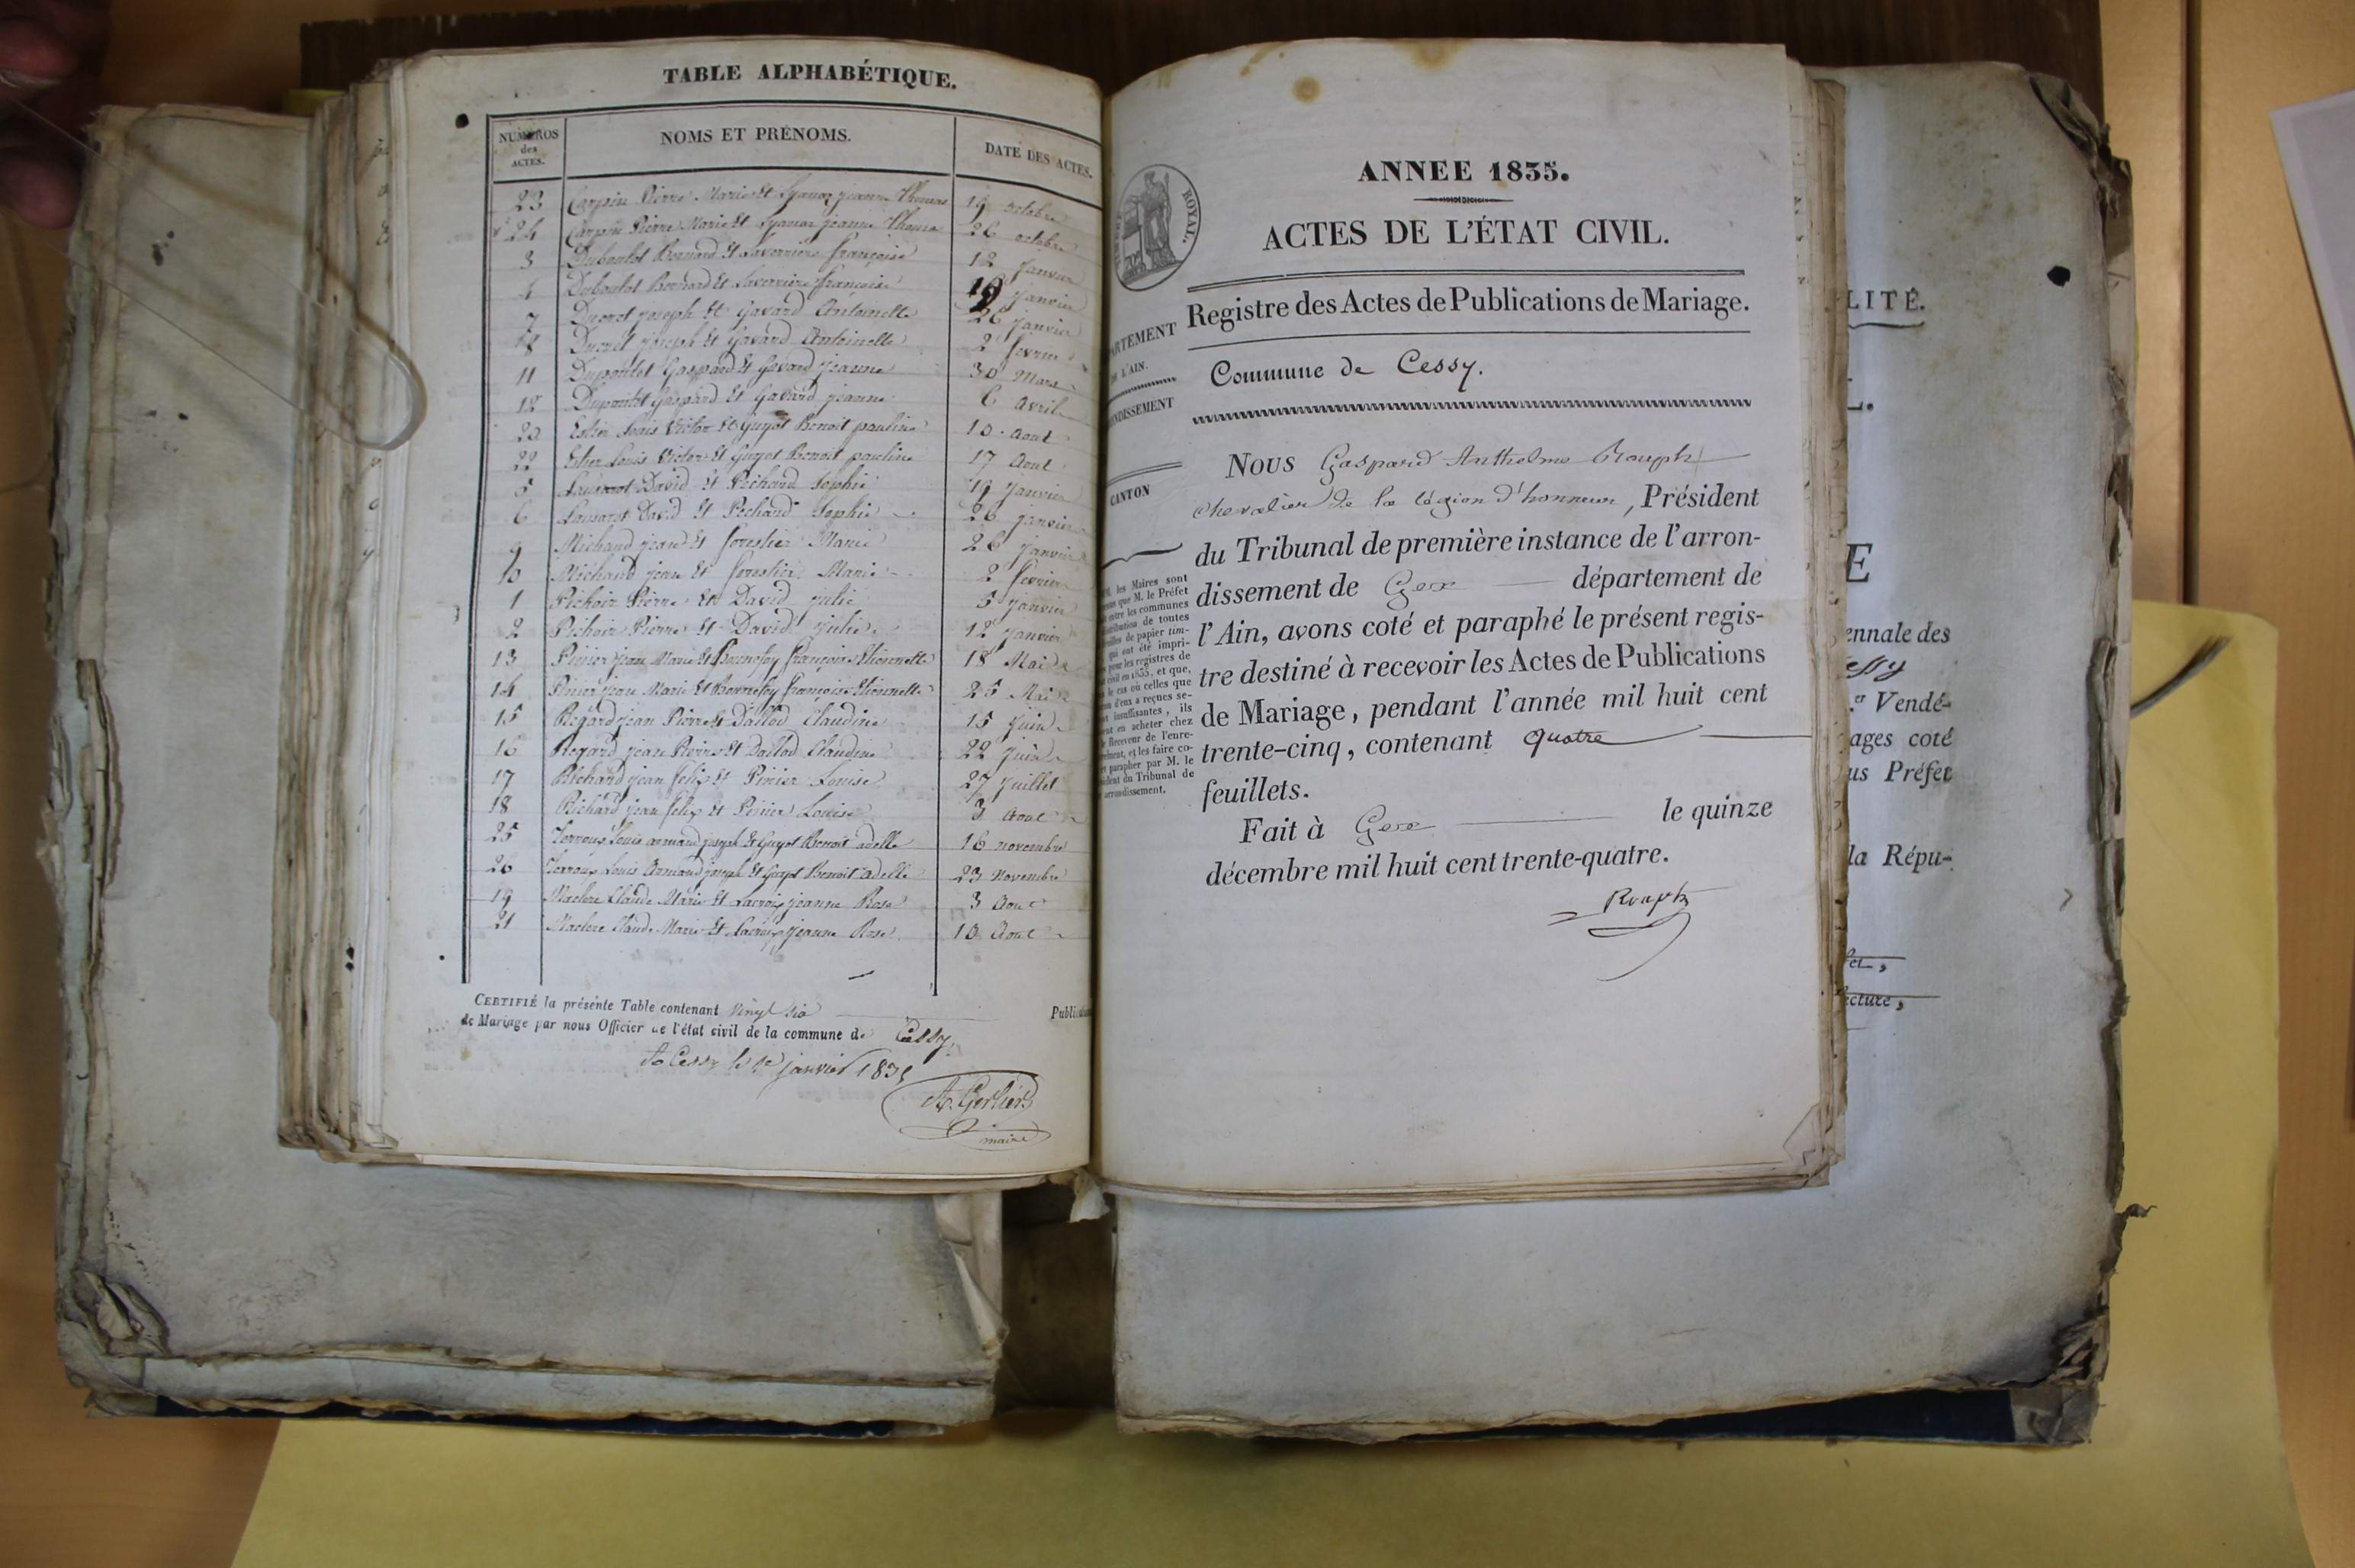 TABLE ALPHABÉTIQUE.
NUMÉROS des ACTES.
NOMS ET PRÉNOMS.
DATE DES ACTES.
23 Carpin Pierre Marie Et jeanne 19 octobre
24 Carpin Pierre Marie Et jeanne 26 octobre
3 Duboulot Bernard Et Laverriere françoise 12 janvier
4 Duboulot Bernard Et Laverriere françoise 19 janvier
7 Ducret joseph Et Gavard Antoinette 26 janvier
8 Ducret joseph Et Gavard Antoinette 2 fevrier
11 Dupontet Gaspard Et Gavard jeanne 30 Mars
12 Dupontet Gaspard Et Gavard jeanne 6 Avril
20 Louis Victor Et Guyot Benoit pauline 10 Aout
22 Louis Victor Et Guyot Benoit pauline 17 Aout
5 David Et Pechaud Sophie 19 janvier
6 David Et Pechaud Sophie 26 janvier
9 Michaud jean Et forestier Marie 26 janvier
10 Michaud jean Et forestier Marie 2 fevrier
1 Pichoir Pierre Et David julie 5 janvier
2 Pichoir Pierre Et David julie 12 janvier
13 Pinier jean Marie Et Bonnefoy françoise Etiennette 18 Mai
14 Pinier jean Marie Et Bonnefoy françoise Etiennette 25 Mai
15 Regard jean Pierre Et Dallod Claudine 15 juin
16 Regard jean Pierre Et Dallod Claudine 22 juin
17 Richard jean felix Et Pinier Louise 27 juillet
18 Richard jean felix Et Pinier Louise 3 Aout
25 Louis armand joseph Et Guyot Benoit adelle 16 novembre
26 Louis Armand joseph Et Guyot Benoit adelle 23 Novembre
19 Claude Marie Et Lacroix jeanne Rose 3 Aout
21 Claude Marie Et Lacroix jeanne Rose 10 Aout
CERTIFIÉ la présente Table contenant vingt six
de Mariage par nous Officier de l'état civil de la commune de Cessy.
A Cessy le 1er janvier 1835
A. Gerlier
maire
ROYAL.
ANNEE 1835.
ACTES DE L'ÉTAT CIVIL.
Registre des Actes de Publications de Mariage.
DE L'AIN.
CANTON
Commune de Cessy.
MM. les Maires sont
que M. le Préfet
entre les communes
de toutes
de papier tim-
qui ont été impri-
pour les registres de
civil en 1835, et que,
le cas où celles que
d'eux a reçues se-
insuffisantes, ils
en acheter chez
Receveur de l'enre-
et les faire co-
parapher par M. le
du Tribunal de
arrondissement.
Nous Gaspard Anthelme Rouph
chevalier de la légion d'honneur, Président
du Tribunal de première instance de l'arron-
dissement de Gex département de
l'Ain, avons coté et paraphé le présent regis-
tre destiné à recevoir les Actes de Publications
de Mariage, pendant l'année mil huit cent
trente-cinq, contenant quatre
feuillets.
Fait à Gex le quinze
décembre mil huit cent trente-quatre.
Rouph
LITÉ.
E
ennale des
essy
Vendé-
ages coté
us Préfet
la Répu-